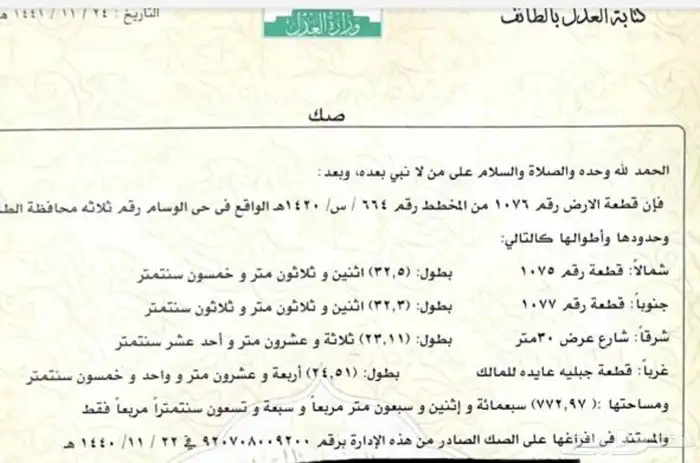 كتابة العدل بالطائف
وزارة العدل
التاريخ: ٢٤ / ١١ / ١٤٤١ هـ
صك
الحمد لله وحده والصلاة والسلام على من لا نبي بعده، وبعد:
فإن قطعة الارض رقم ١٠٧٦ من المخطط رقم ٦٦٤ / س/ ١٤٢٠هـ الواقع في حي الوسام رقم ثلاثه محافظة
وحدودها وأطوالها كالتالي:
شمالاً: قطعة رقم ١٠٧٥ بطول: (٣٢,٥) اثنين و ثلاثون متر و خمسون سنتمتر
جنوباً: قطعة رقم ١٠٧٧ بطول: (٣٢,٣) اثنين و ثلاثون متر و ثلاثون سنتمتر
شرقاً: شارع عرض ٣٠متر بطول: (٢٣,١١) ثلاثة و عشرون متر و أحد عشر سنتمتر
غرباً: قطعة جبليه عايده للمالك بطول: (٢٤,٥١) أربعة و عشرون متر و واحد و خمسون سنتمتر
ومساحتها :( ٧٧٢,٩٧) سبعمائة و إثنين و سبعون متر مربعاً و سبعة و تسعون سنتمتراً مربعاً فقط
والمستند في افراغها على الصك الصادر من هذه الإدارة برقم ٩٢٠٧٠٨٠٠٩٢٠٠ في ٢٢ / ١١ / ١٤٤٠ هـ